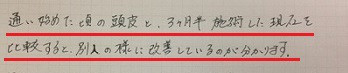 通い始めた頃の頭皮と、3ヶ月半施術した現在を
比較すると、別人の様に改善しているのが分かります。